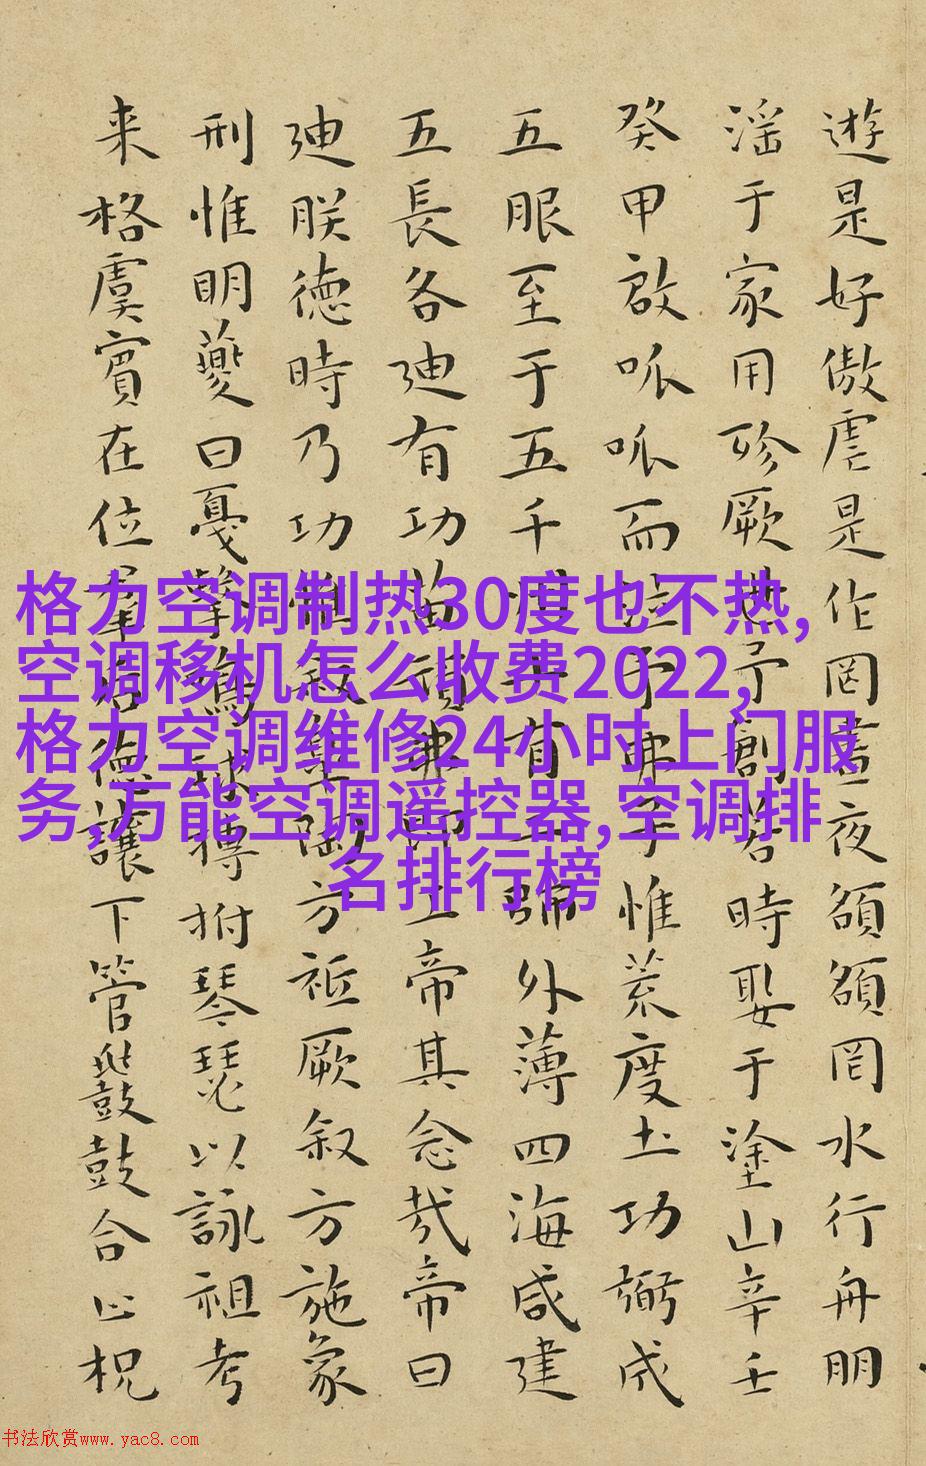 遊是好傲虐是作罔晝夜頟頟罔水行舟朋
淫于家用殄厥世予創若時娶于塗山辛壬
癸甲啟呱呱而泣予弗子惟荒度土功弼成
五服至于五千有師外薄四海咸建
五長各迪有功苗頑弗即工帝其念哉帝曰
迪朕德時乃功惟叙陶方祗厥叙方施象
刑惟明夔曰戛擊鳴球搏拊琴瑟以詠祖考
来格虞賓在位羣后德讓下管鼗鼓合止柷
格力空调制热30度也不热,
空调移机怎么收费2022,
格力空调维修24小时上门服
务,万能空调遥控器,空调排
名排行榜
书法欣赏www.yac8.com